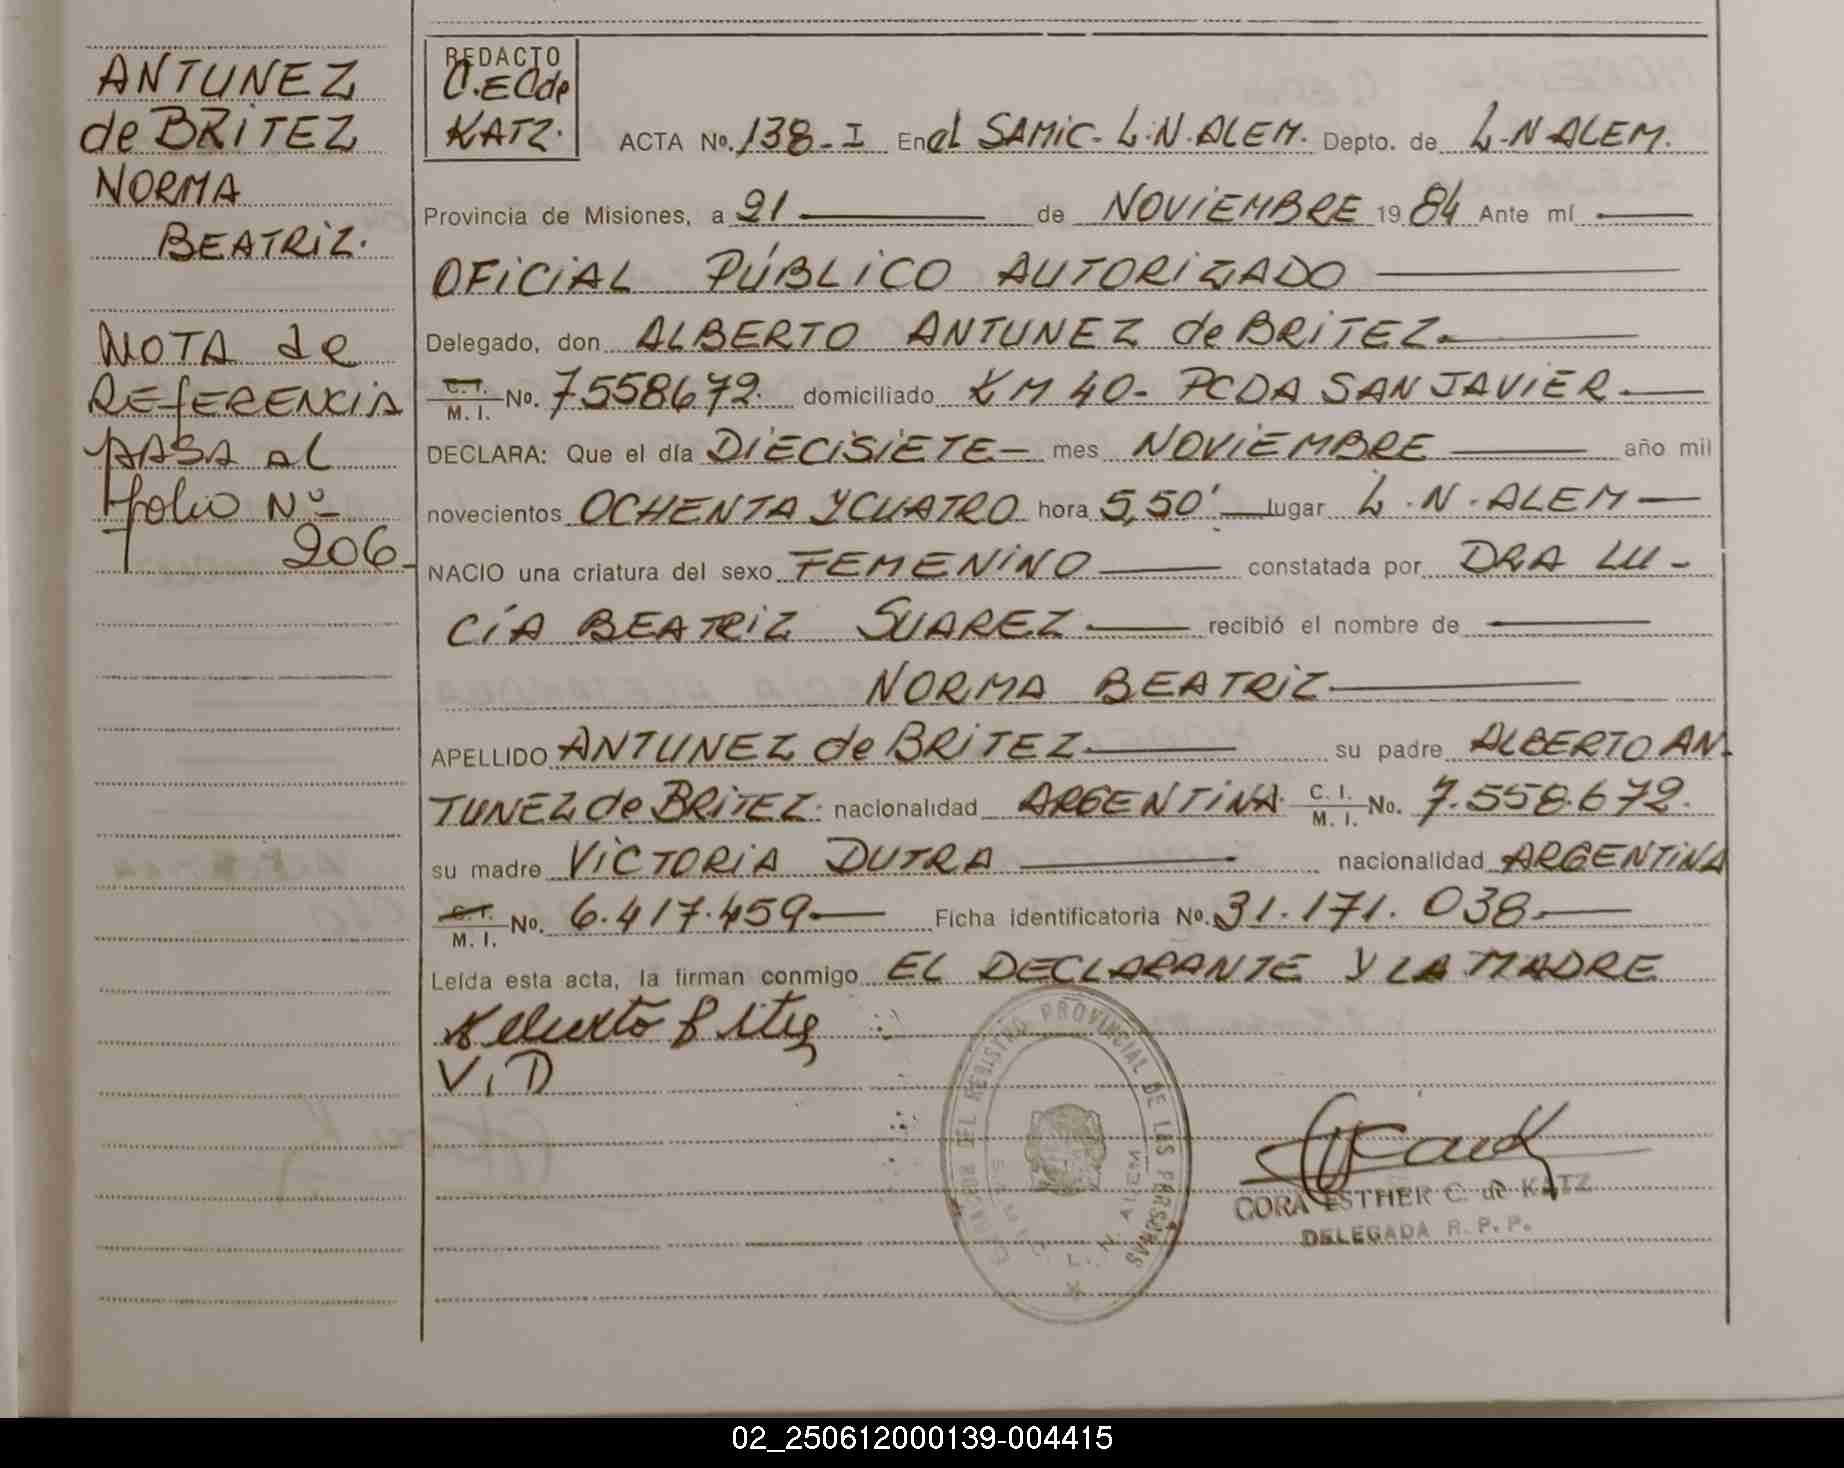 ANTUNEZ
de BRITEZ
NORMA
BEATRIZ.
NOTA de
REFERENCIA
PASA AL
folio Nº
206-
REDACTO
C.ECde
KATZ.
ACTA No. 138-I En el SAMIC- L.N.ALEM. Depto. de L.N ALEM.
Provincia de Misiones, a 21 de NOVIEMBRE 19 84 Ante mí
OFICIAL PÚBLICO AUTORIZADO
Delegado, don ALBERTO ANTUNEZ de BRITEZ.
C.I. M. I. No. 7558672. domiciliado KM 40- PCDA SAN JAVIER
DECLARA: Que el día DIECISIETE- mes NOVIEMBRE año mil
novecientos OCHENTA Y CUATRO hora 5,50' lugar L.N.ALEM
NACIO una criatura del sexo FEMENINO constatada por DRA LU-
CÍA BEATRIZ SUAREZ recibió el nombre de
NORMA BEATRIZ
APELLIDO ANTUNEZ de BRITEZ su padre ALBERTO AN-
TUNEZ de BRITEZ. nacionalidad ARGENTINA. C. I. M. I. No. 7.558.672.
su madre VICTORIA DUTRA nacionalidad ARGENTINA
C.I. M. I. No. 6.417.459 Ficha identificatoria No. 31.171.038
Leída esta acta, la firman conmigo EL DECLARANTE Y LA MADRE
Alberto Britez
V.D
DEL REGISTRO PROVINCIAL DE LAS PERSONAS
SAMIC L. N. ALEM
CORA ESTHER C. de KATZ
DELEGADA R. P. P.
02_250612000139-004415